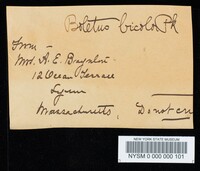 Boletus bicolor Pk
From —
Mrs. A. E.
12 Ocean Terrace
Lynn
Massachusetts, Do not
NEW YORK STATE MUSEUM
NYSM 0 000 000 101